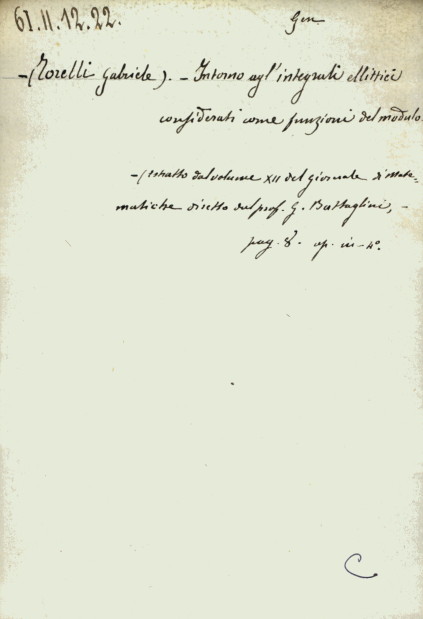 61.II.12.22.
Gen
-(Torelli Gabriele). - Intorno agl'integrali ellittici
considerati come funzioni del modulo.
-(estratto dal volume XII del giornale di Mate=
matiche diretto dal prof. G. Battaglini, -
pag. 8. op. in-4°.
C